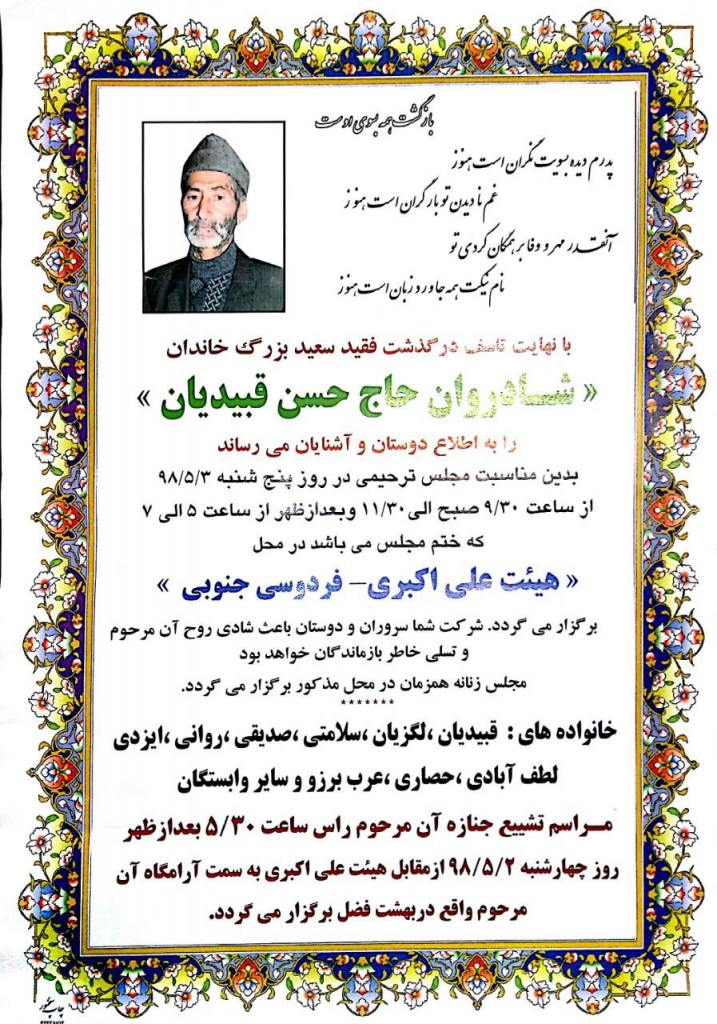 بازگشت همه بسوی اوست
پدرم دیده بسویت نگران است هنوز
غم نادیدن تو بار گران است هنوز
آنقدر مهر و وفا بر همگان کردی تو
نام نیکت همه جا ورد زبان است هنوز
با نهایت تاسف درگذشت فقید سعید بزرگ خاندان
« شادروان حاج حسن قبیدیان »
را به اطلاع دوستان و آشنایان می رساند
بدین مناسبت مجلس ترحیمی در روز پنج شنبه ۹۸/۵/۳
از ساعت ۹/۳۰ صبح الی ۱۱/۳۰ وبعدازظهر از ساعت ۵ الی ۷
که ختم مجلس می باشد در محل
« هیئت علی اکبری- فردوسی جنوبی »
برگزار می گردد. شرکت شما سروران و دوستان باعث شادی روح آن مرحوم
و تسلی خاطر بازماندگان خواهد بود
مجلس زنانه همزمان در محل مذکور برگزار می گردد.
*******
خانواده های : قبیدیان ،لگزیان ،سلامتی ،صدیقی ،روانی ،ایزدی
لطف آبادی ،حصاری ،عرب برزو و سایر وابستگان
مــراسم تشییع جنازه آن مرحوم راس ساعت ۵/۳۰ بعدازظهر
روز چهارشنبه ۹۸/۵/۲ ازمقابل هیئت علی اکبری به سمت آرامگاه آن
مرحوم واقع دربهشت فضل برگزار می گردد.
چاپ